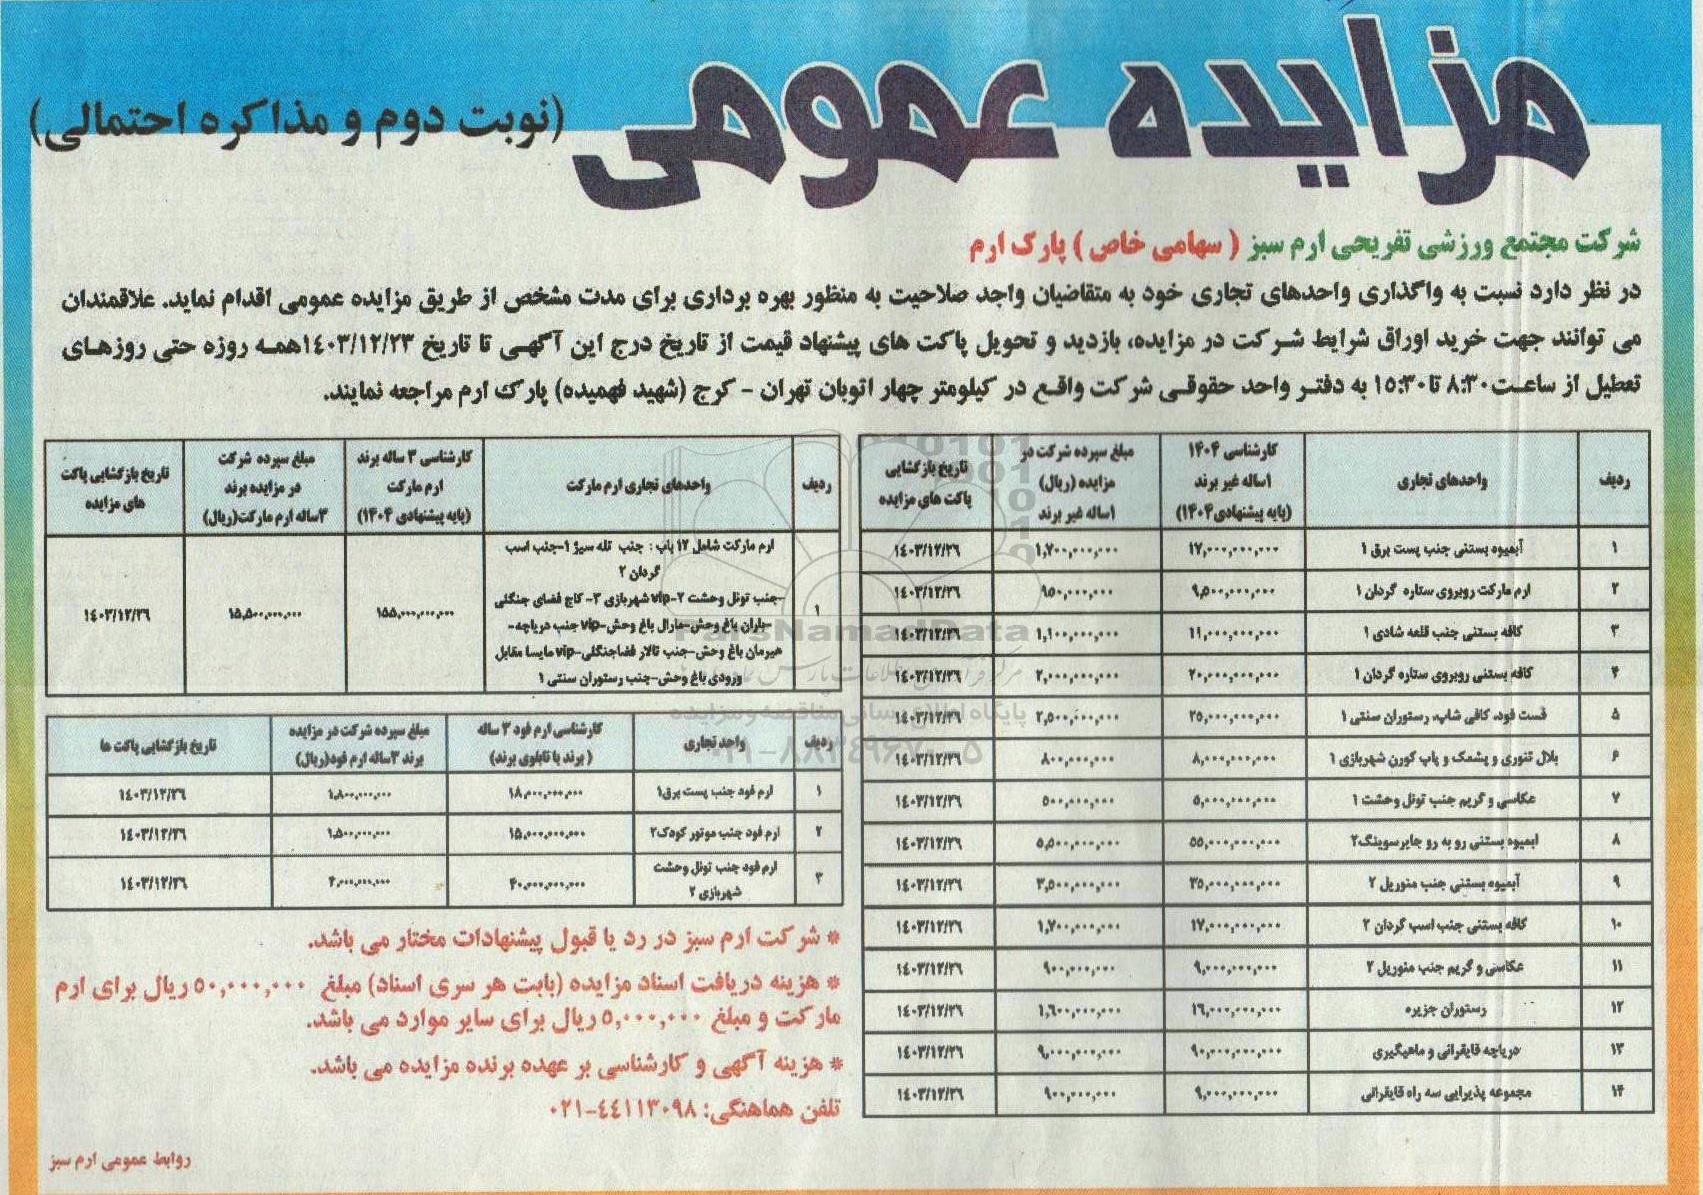 مزایده عمومی (نوبت دوم و مذاکره احتمالی)
شرکت مجتمع ورزشی تفریحی ارم سبز ( سهامی خاص ) پارک ارم
در نظر دارد نسبت به واگذاری واحدهای تجاری خود به متقاضیان واجد صلاحیت به منظور بهره برداری برای مدت مشخص از طریق مزایده عمومی اقدام نماید. علاقمندان
می توانند جهت خرید اوراق شرایط شرکت در مزایده، بازدید و تحویل پاکت های پیشنهاد قیمت از تاریخ درج این آگهی تا تاریخ ۱۴۰۳/۱۲/۲۳همه روزه حتی روزهای
تعطیل از ساعت۸:۳۰ تا۱۵:۳۰ به دفتر واحد حقوقی شرکت واقع در کیلومتر چهار اتوبان تهران - کرج (شهید فهمیده) پارک ارم مراجعه نمایند.
ردیف | واحدهای تجاری | کارشناسی ۱۴۰۴ ۱ساله غیر برند (پایه پیشنهادی۱۴۰۴) | مبلغ سپرده شرکت در مزایده (ریال) ۱ساله غیر برند | تاریخ بازگشایی پاکت های مزایده
۱ | آبمیوه بستنی جنب پست برق ۱ | ۱۷,۰۰۰,۰۰۰,۰۰۰ | ۱,۷۰۰,۰۰۰,۰۰۰ | ۱۴۰۳/۱۲/۲۶
۲ | ارم مارکت روبروی ستاره گردان ۱ | ۹,۵۰۰,۰۰۰,۰۰۰ | ۹۵۰,۰۰۰,۰۰۰ | ۱۴۰۳/۱۲/۲۶
۳ | کافه بستنی جنب قلعه شادی ۱ | ۱۱,۰۰۰,۰۰۰,۰۰۰ | ۱,۱۰۰,۰۰۰,۰۰۰ | ۱۴۰۳/۱۲/۲۶
۴ | کافه بستنی روبروی ستاره گردان ۱ | ۲۰,۰۰۰,۰۰۰,۰۰۰ | ۲,۰۰۰,۰۰۰,۰۰۰ | ۱۴۰۳/۱۲/۲۶
۵ | فست فود، کافی شاپ، رستوران سنتی ۱ | ۲۵,۰۰۰,۰۰۰,۰۰۰ | ۲,۵۰۰,۰۰۰,۰۰۰ | ۱۴۰۳/۱۲/۲۶
۶ | بلال تنوری و پشمک و پاپ کورن شهربازی ۱ | ۸,۰۰۰,۰۰۰,۰۰۰ | ۸۰۰,۰۰۰,۰۰۰ | ۱۴۰۳/۱۲/۲۶
۷ | عکاسی و گریم جنب تونل وحشت ۱ | ۵,۰۰۰,۰۰۰,۰۰۰ | ۵۰۰,۰۰۰,۰۰۰ | ۱۴۰۳/۱۲/۲۶
۸ | ابمیوه بستنی رو به رو جایرسوینگ۲ | ۵۵,۰۰۰,۰۰۰,۰۰۰ | ۵,۵۰۰,۰۰۰,۰۰۰ | ۱۴۰۳/۱۲/۲۶
۹ | آبمیوه بستنی جنب منوریل ۲ | ۳۵,۰۰۰,۰۰۰,۰۰۰ | ۳,۵۰۰,۰۰۰,۰۰۰ | ۱۴۰۳/۱۲/۲۶
۱۰ | کافه بستنی جنب اسب گردان ۲ | ۱۷,۰۰۰,۰۰۰,۰۰۰ | ۱,۷۰۰,۰۰۰,۰۰۰ | ۱۴۰۳/۱۲/۲۶
۱۱ | عکاسی و گریم جنب منوریل ۲ | ۹,۰۰۰,۰۰۰,۰۰۰ | ۹۰۰,۰۰۰,۰۰۰ | ۱۴۰۳/۱۲/۲۶
۱۲ | رستوران جزیره | ۱۶,۰۰۰,۰۰۰,۰۰۰ | ۱,۶۰۰,۰۰۰,۰۰۰ | ۱۴۰۳/۱۲/۲۶
۱۳ | دریاچه قایقرانی و ماهیگیری | ۹۰,۰۰۰,۰۰۰,۰۰۰ | ۹,۰۰۰,۰۰۰,۰۰۰ | ۱۴۰۳/۱۲/۲۶
۱۴ | مجموعه پذیرایی سه راه قایقرانی | ۹,۰۰۰,۰۰۰,۰۰۰ | ۹۰۰,۰۰۰,۰۰۰ | ۱۴۰۳/۱۲/۲۶
ردیف | واحدهای تجاری ارم مارکت | کارشناسی ۳ ساله برند ارم مارکت (پایه پیشنهادی ۱۴۰۴) | مبلغ سپرده شرکت در مزایده برند ۳ساله ارم مارکت(ریال) | تاریخ بازگشایی پاکت های مزایده
۱ | ارم مارکت شامل ۱۲ باب : جنب تله سیژ ۱-جنب اسب
گردان ۲
-جنب تونل وحشت ۲-vip شهربازی ۳- کاج فضای جنگلی
-باران باغ وحش-مارال باغ وحش-vip جنب دریاچه-
هیرمان باغ وحش-جنب تالار فضاجنگلی-vip مایسا مقابل
ورودی باغ وحش-جنب رستوران سنتی ۱ | ۱۵۵,۰۰۰,۰۰۰,۰۰۰ | ۱۵,۵۰۰,۰۰۰,۰۰۰ | ۱۴۰۳/۱۲/۲۶
ردیف | واحد تجاری | کارشناسی ارم فود ۳ ساله ( برند با تابلوی برند) | مبلغ سپرده شرکت در مزایده برند ۳ساله ارم فود(ریال) | تاریخ بازگشایی پاکت ها
۱ | ارم فود جنب پست برق۱ | ۱۸,۰۰۰,۰۰۰,۰۰۰ | ۱,۸۰۰,۰۰۰,۰۰۰ | ۱۴۰۳/۱۲/۲۶
۲ | ارم فود جنب موتور کودک۲ | ۱۵,۰۰۰,۰۰۰,۰۰۰ | ۱,۵۰۰,۰۰۰,۰۰۰ | ۱۴۰۳/۱۲/۲۶
۳ | ارم فود جنب تونل وحشت شهربازی ۲ | ۴۰,۰۰۰,۰۰۰,۰۰۰ | ۴,۰۰۰,۰۰۰,۰۰۰ | ۱۴۰۳/۱۲/۲۶
* شرکت ارم سبز در رد یا قبول پیشنهادات مختار می باشد.
* هزینه دریافت اسناد مزایده (بابت هر سری اسناد) مبلغ ۵۰,۰۰۰,۰۰۰ ریال برای ارم
مارکت و مبلغ ۵,۰۰۰,۰۰۰ ریال برای سایر موارد می باشد.
* هزینه آگهی و کارشناسی بر عهده برنده مزایده می باشد.
تلفن هماهنگی: ۴۴۱۱۳۰۹۸-۰۲۱
روابط عمومی ارم سبز
ParsNamadData
پایگاه اطلاع رسانی مناقصه و مزایده
۰۲۱-۸۸۳۴۹۶۷۰-۵